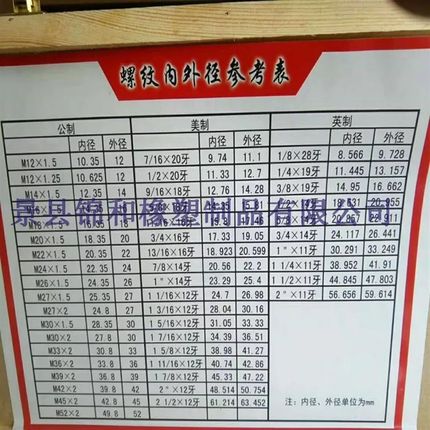 螺纹内外径参考表
公制 美制 英制
内径 外径 内径 外径 内径 外径
M12×1.5 10.35 12 7/16×20牙 9.74 11.1 1/8×28牙 8.566 9.728
M12×1.25 10.625 12 1/2×20牙 11.33 12.7 1/4×19牙 11.445 13.157
M14×1.5 12.35 14 9/16×18牙 12.76 14.28 3/8×19牙 14.95 16.662
景县锦和橡塑制品有限公司
M20×1.5 18.35 20 3/4×16牙 17.33 19.05 3/4×14牙 24.117 26.441
M22×1.5 20.35 22 13/16×12牙 18.923 20.599 1"×11牙 30.291 33.249
M24×1.5 22.35 24 7/8×14牙 20.56 22.2 1 1/4×11牙 38.952 41.91
M26×1.5 24.35 26 1"×14牙 23.29 25.4 1 1/2×11牙 44.845 47.803
M27×1.5 25.35 27 1 1/16×12牙 24.7 26.98 2"×11牙 56.656 59.614
M27×2 24.8 27 1 3/16×12牙 28.04 30.16
M30×1.5 28.35 30 1 5/16×12牙 31.05 33.33
M30×2 27.8 30 1 7/16×12牙 34.39 36.51
M33×2 30.8 33 1 5/8×12牙 38.98 41.27
M36×2 33.8 36 1 11/16×12牙 40.74 42.86
M39×2 36.8 39 1 7/8×12牙 45.33 47.22
M42×2 39.8 42 2"×12牙 48.514 50.754
M45×2 42.8 45 2 1/2×12牙 61.214 63.452
M52×2 49.8 52
注：内径、外径单位为mm